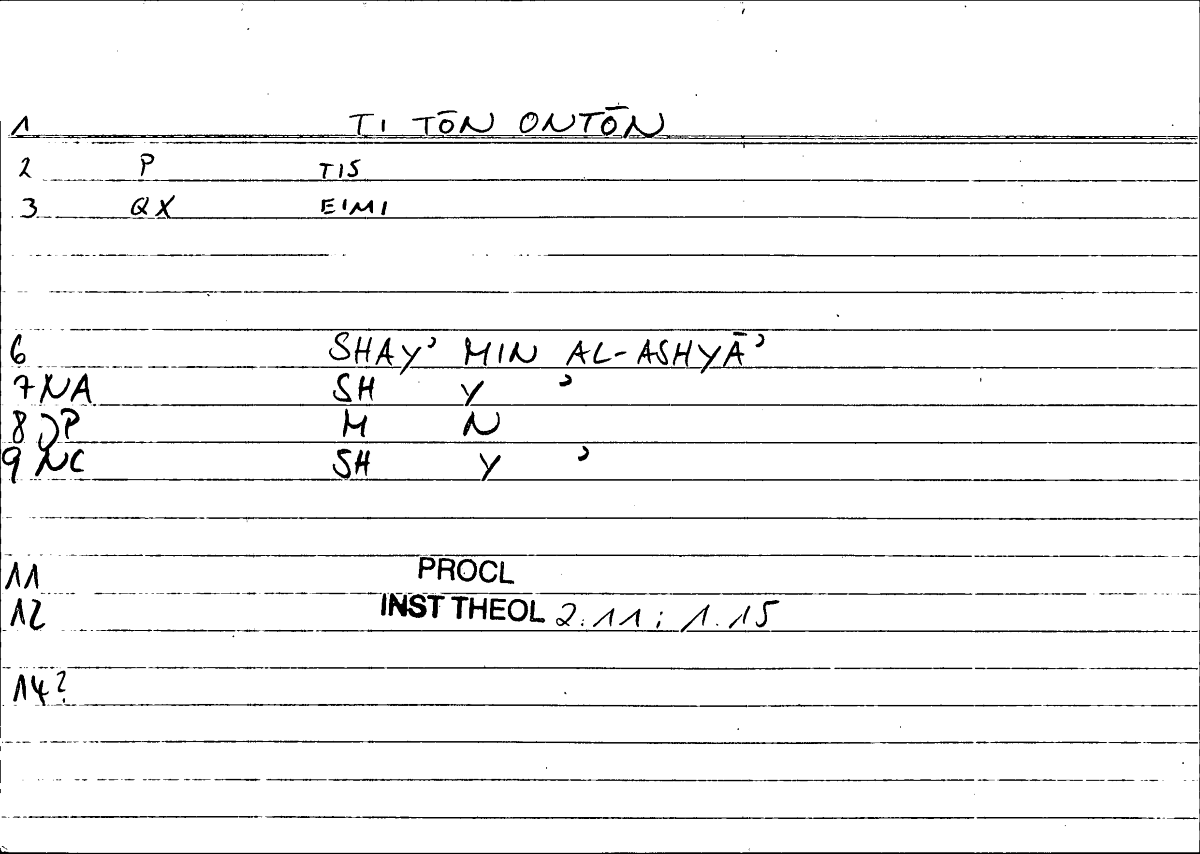 1 TI TŌN ONTŌN
2 P TIS
3 QX EIMI
6 SHAY’ MIN AL-ASHYĀ’
7 NA SH Y ’
8 DP M N
9 NC SH Y ’
11 PROCL
12 INST THEOL 2.11; 1.15
14?